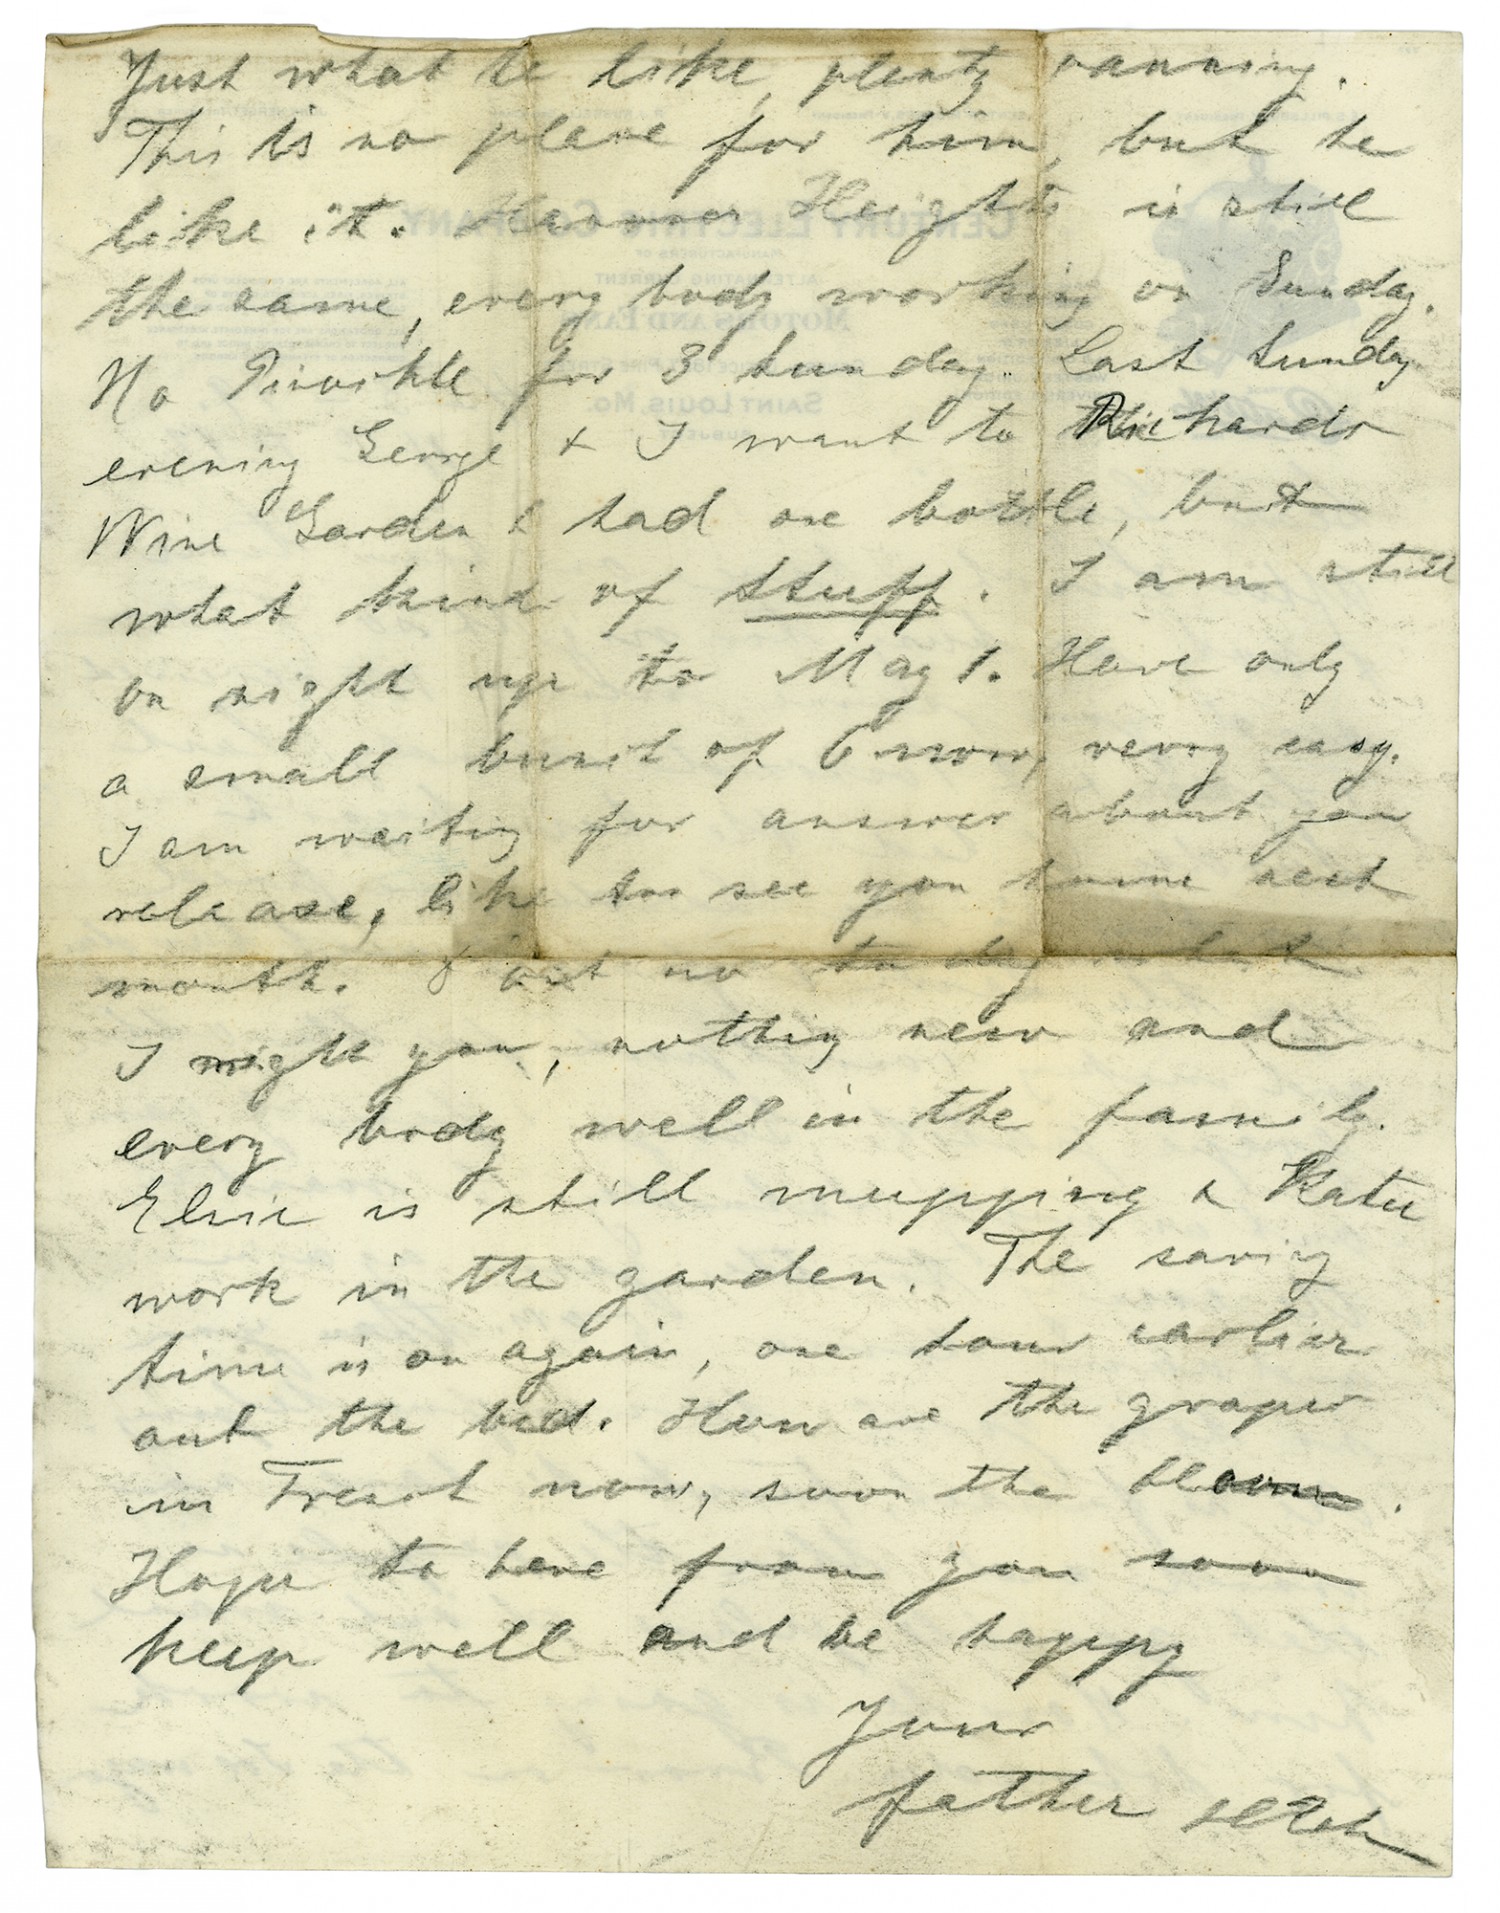 Just what he like, plenty running.
This is no place for him, but he
like it. Hanover Heights is still
the same, every body working on Sunday.
No Pinochle for 3 Sunday. Last Sunday
evening George & I want to Richards
Wine Garden & had one bottle, but
what kind of stuff. I am still
on night up to May 1. Have only
a small bunch of 6 now, verry easy.
I am waiting for answer about you
release, like to see you home next
month. no to day what
I might you, nothing new and
every body well in the family.
Elsie is still mupping & Katie
work in the garden. The saving
time is on again, one hour earlier
out the bed. How are the grapes
in French now, soon the bloom.
Hope to here from you soon
keep well and be happy
Your
father
CENTURY ELECTRIC COMPANY
MANUFACTURERS OF
ALTERNATING CURRENT
MOTORS AND FANS
SAINT LOUIS, MO.